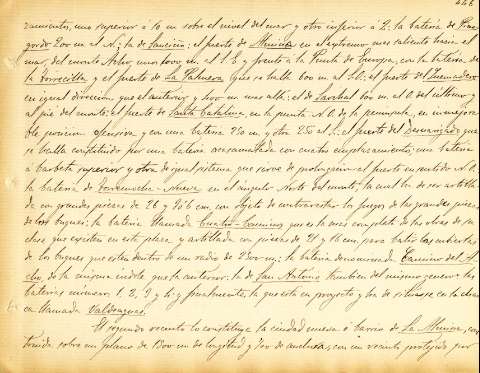 426
zamientos, una superior á 10 m sobre el nivel del mar y otro inferior á 2: la batería de
gordo 200 m al N.; la de Sarracino: el puerto de Almina en el extremo mas saliente hacia el
mar, del monte Acho, unos 1000 m al S E y frente á la Punta de Europa, con la batería de
la Torrecilla y el puerto de La Palmera (que se halla 600 m al S.O: el puerto del Quemadero
en igual direccion que el anterior y 400 m mas allá: el de Sarchal 600 m al O del último y
al pie del monte: el puerto de Santa Catalina, en la punta N.O. de la península, en inmejora-
ble posicion ofensiva y con una batería 210 m, y otra 250 al S.: el puerto del Desnarigado que
se halla constituido por una batería acasamatada con cuatro emplazamientos; una batería
á barbeta superior y otra de igual sistema que sirve de prolongacion al puerto en sentido N.O.
la batería de Torremocha-Nueva en el ángulo Norte del monte; la cual ha de ser artilla-
da con grandes piezas de 26 y 30'5 cm, con objeto de contrarrestar los fuegos de las grandes piezas
de los buques: la batería llamada Cuatro-Caminos que es la mas completa de las obras de su
clase que existen en esta plaza, y artillada con piezas de 21 y 14 cm, para batir las cubiertas
de los buques que esten dentro de un radio de 2200 m: la batería denominada Camino del A-
cho de la misma índole que la anterior: la de San Antonio tambien del mismo género: las
baterías números 1, 2, 3 y 4; y finalmente, la que está en proyecto y ha de situarse en la altura
en llamada Valdeaguas.
El segundo recinto lo constituye la ciudad nueva ó barrio de La Almina, cons-
truida sobre un plano de 1500 m de longitud y 400 de anchura, con un recinto protegido por